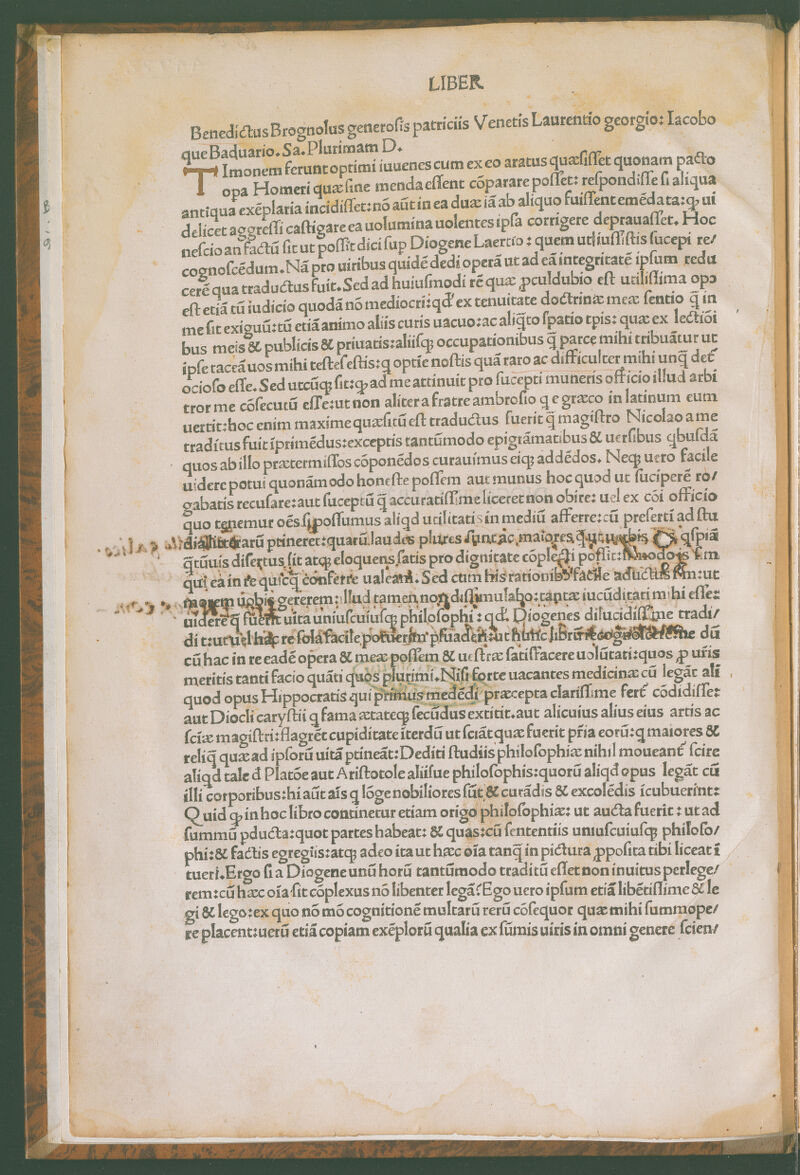 LIBER
Benedictus Brognolus generosis patriciis Venetis Laurentio georgio: Iacobo
que Baduario. Sa. Plurimam D.
TImonem ferunt optimi iuuenes cum ex eo aratus quæsisset quonam pacto
opa Homeri quæ sine menda essent cōparare posset: respondisse si aliqua
antiqua exēplaria incidisset: nō aūt in ea duæ iā ab aliquo fuissent emēdata: ꝙ ui
delicet aggressi castigare ea uolumina uolentes ipsa corrigere deprauasset. Hoc
nescio an factū sit ut possit dici sup Diogene Laertio: quem uti iussistis sucepi re/
cognoscēdum. Nā pro uiribus quidē dedi operā ut ad eā integritatē ipsum redu
cerē qua traductus fuit. Sed ad huiusmodi rē quæ ꝓculdubio est utilissima opa
est etiā tū iudicio quodā nō mediocri: qđ ex tenuitate doctrinæ meæ sentio q̄ in
me sit exiguū: tū etiā animo aliis curis uacuo: ac aliq̄to spatio tpis: quæ ex lectiōi
bus meis & publicis & priuatis: aliisq; occupationibus q̄ parce mihi tribuātur ut
ipse taceā uos mihi testes estis: q optīe nostis quā raro ac difficulter mihi unq̄ det̄
ocioso esse. Sed utcūq; sit: ꝙ ad me attinuit pro sucepti muneris officio illud arbi
tror me cōsecutū esse: ut non aliter a fratre ambrosio q e græco in latinum eum
uertit: hoc enim maxime quæsitū est traductus fuerit q̄ magistro Nicolao a me
traditus fuit īprimēdus: exceptis tantūmodo epigrāmatibus & uersibus qbusdā
quos ab illo prætermissos cōponēdos curauimus eiq; addēdos. Neq; uero facile
uidere potui quonāmodo honeste possem aut munus hoc quod ut suciperē ro/
gabatis recusare: aut suceptū q̄ accuratissime liceret non obire: uel ex cōi officio
quo tenemur oēs si possumus aliqd utilitatis in mediū afferre: cū prefertī ad stu
ptineret: quarū laudes plures sunt ac maiores
q̄tūuis disertus sit atq; eloquens satis pro dignitate cōplecti possit:
qui ea in re quicq̄ conferre ualeant. Sed cum his rationibus facile adductus sum: ut
morem uobis gererem: illud tamen non dissimulabo: tāptæ iucūditati mihi esse:
uidere q̄ fuerit uita uniuscuiusq; philosophi: qđ Diogenes dilucidissime tradi/
dit: ut uel hac re sola facile potuerim psuaderi: ut hunc librū recognoscerem: dū
cū hac in re eadē opera & meæ possem & uestræ satisfacere uolūtati: quos ꝓ uris
meritis tanti facio quāti quos plurimi. Nisi forte uacantes medicinæ cū legāt ali
quod opus Hippocratis qui primus medēdi præcepta clarissime fert̄ cōdidisse:
aut Diocli carystii q fama ætateq; secūdus extitit. aut alicuius alius eius artis ac
sciæ magistri: flagrēt cupiditate īterdū ut sciāt quæ fuerit pr̄ia eorū: q maiores &
reliq̄ quæ ad ipsorū uitā ptineāt: Dediti studiis philosophiæ nihil moueant̄ scire
aliqd tale đ Platōe aut Aristotole aliisue philosophis: quorū aliqd opus legāt cū
illi corporibus: hi aūt aīs q lōge nobiliores sūt & curādis & excolēdis īcubuerint:
Quid ꝙ in hoc libro continetur etiam origo philosophiæ: ut aucta fuerit: ut ad
summū pducta: quot partes habeat: & quas: cū sententiis uniuscuiusq; philoso/
phi: & factis egregiis: atq; adeo ita ut hæc oīa tanq̄ in pictura ꝓposita tibi liceat ī
tueri. Ergo si a Diogene unū horū tantūmodo traditū esset non inuitus perlege/
rem: cū hæc oīa sit cōplexus nō libenter legā? Ego uero ipsum etiā libētissime & le
gi & lego: ex quo nō mō cognitionē multarū rerū cōsequor quæ mihi summope/
re placent: uerū etiā copiam exēplorū qualia ex sūmis uiris in omni genere scien/